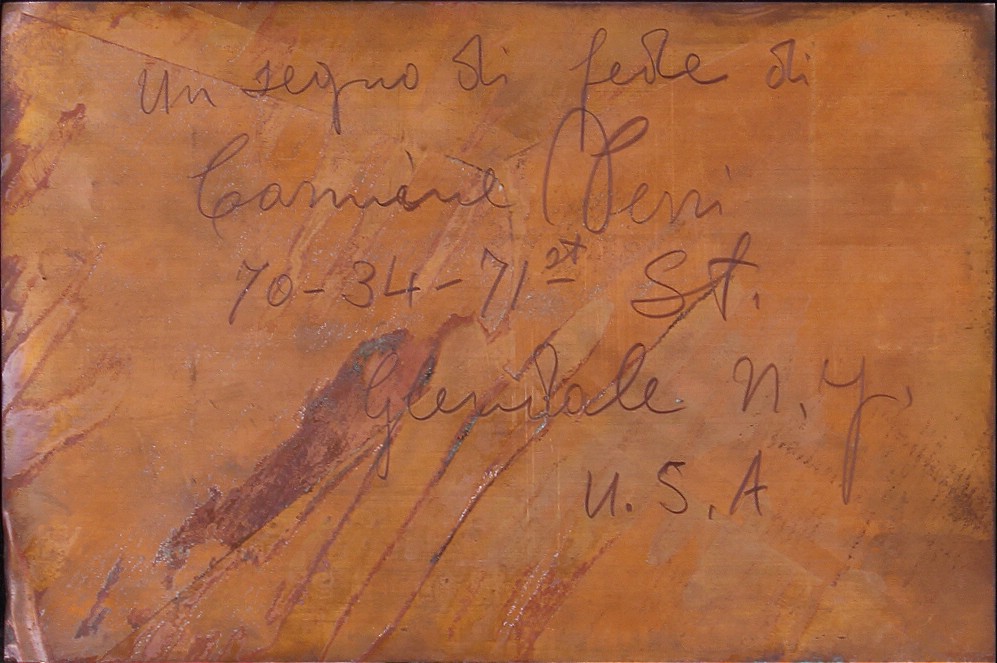 Un segno di fede di
Carmine Perri
70-34-71st St.
Glendale N.Y.
U.S.A